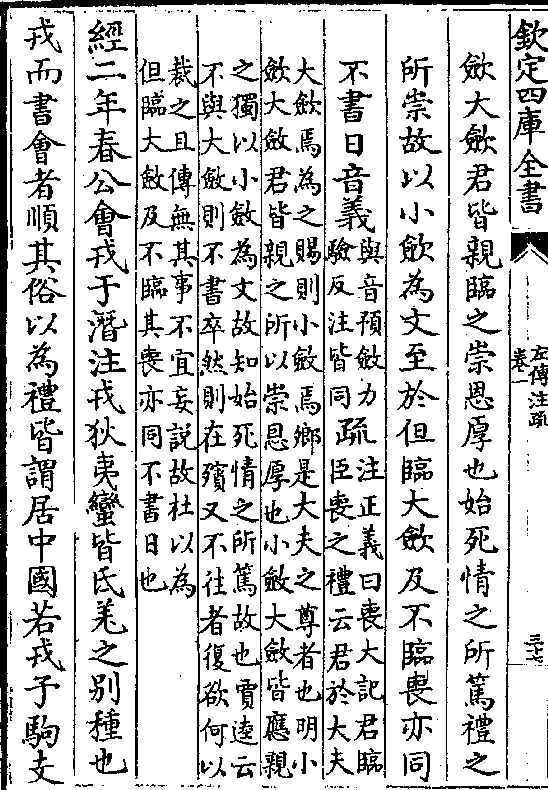 欽定四庫全書
左傳注疏
卷一
三十七
歛大歛君皆親臨之崇恩厚也始死情之所篤禮之
所崇故以小歛為文至於但臨大歛及不臨喪亦同
不書日音義
與音預歛力
驗反注皆同
疏
注正義曰喪大記君臨
臣喪之禮云君於大夫
大歛焉為之賜則小歛焉鄉是大夫之尊者也明小
歛大歛君皆親之所以崇恩厚也小歛大歛皆應親
之獨以小歛為文故知始死情之所篤故也賈逵云
不與大歛則不書卒然則在殯又不往者復欲何以
裁之且傳無其事不宜妄説故杜以為
但臨大歛及不臨其喪亦同不書日也
經二年春公會戎于潛注戎狄夷蠻皆氐羌之别種也
戎而書會者順其俗以為禮皆謂居中國若戎子駒支